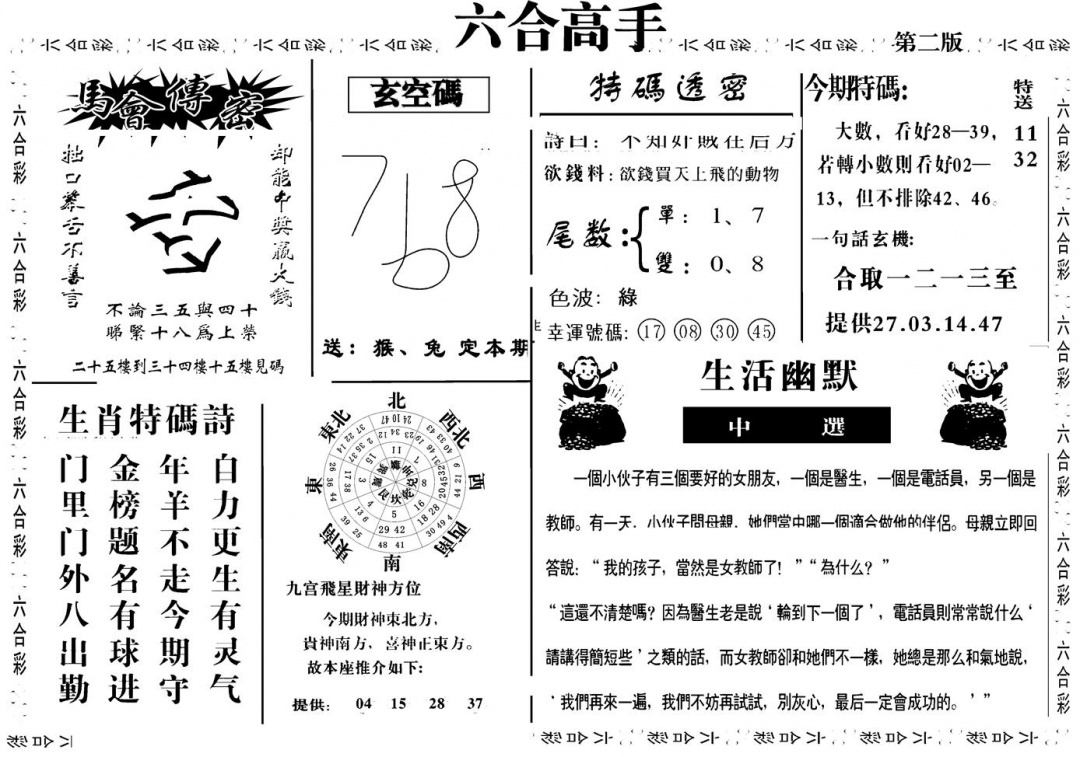 六合高手
第二版
馬會傳密
拙口繁舌不善言
却能中獎贏大錢
不論三五與四十
睇緊十八爲上榮
二十五樓到三十四樓十五樓見碼
玄空碼
718
送：猴、兔 定本期
特碼透密
詩曰：不知奸敗在后方
欲錢料：欲錢買天上飛的動物
尾数：
單：1、7
雙：0、8
色波：綠
幸運號碼：17 08 30 45
今期特碼:
特送
11
32
大數，看好28—39，
若轉小數則看好02—
13，但不排除42、46。
一句話玄機:
合取一二一三至
提供27.03.14.47
生肖特碼詩
白力更生有灵气
年羊不走今期守
金榜题名有球进
门里门外八出勤
北
西北
西
西南
南
東南
東
東北
九宫飛星財神方位
今期財神東北方，
貴神南方，喜神正東方。
故本座推介如下:
提供: 04 15 28 37
生活幽默
中選
一個小伙子有三個要好的女朋友，一個是醫生，一個是電話員，另一個是
教師。有一天，小伙子問母親，她們當中哪一個適合做他的伴侶。母親立即回
答説：“我的孩子，當然是女教師了！”“為什么？”
“這還不清楚嗎？因為醫生老是説‘輪到下一個了’，電話員則常常説什么‘
請講得簡短些’之類的話，而女教師卻和她們不一樣，她總是那么和氣地説，
‘我們再來一遍，我們不妨再試試，別灰心，最后一定會成功的。’”
六合彩